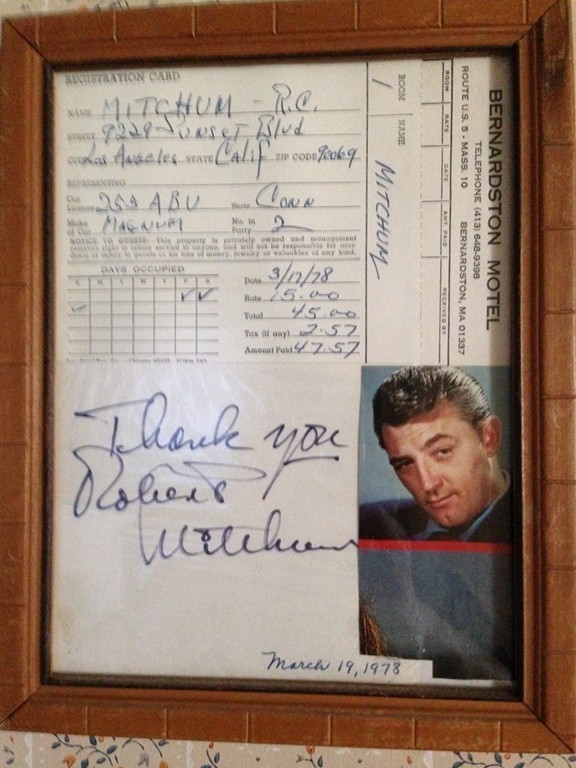 REGISTRATION CARD
NAME MITCHUM - R.C.
STREET 9229 Sunset Blvd
CITY Los Angeles STATE Calif ZIP CODE 90069
REPRESENTING
Car License 259 ABU State CONN
Make of Car MAGNUM No. in Party 2
NOTICE TO GUESTS: This property is privately owned and management
reserves right to refuse service to anyone, and will not be responsible for acci-
dents or injury to guests or for loss of money, jewelry or valuables of any kind.
DAYS OCCUPIED
Date 3/17/78
Rate 15.00
Total 45.00
Tax (if any) 2.57
Amount Paid 47.57
ROOM NAME
1 MITCHUM
ROOM RATE DATE AMT. PAID RECEIVED BY
BERNARDSTON MOTEL
TELEPHONE (413) 648-9398
ROUTE U.S. 5 - MASS. 10 BERNARDSTON, MA 01337
Thank you
Robert
Mitchum
March 19, 1978